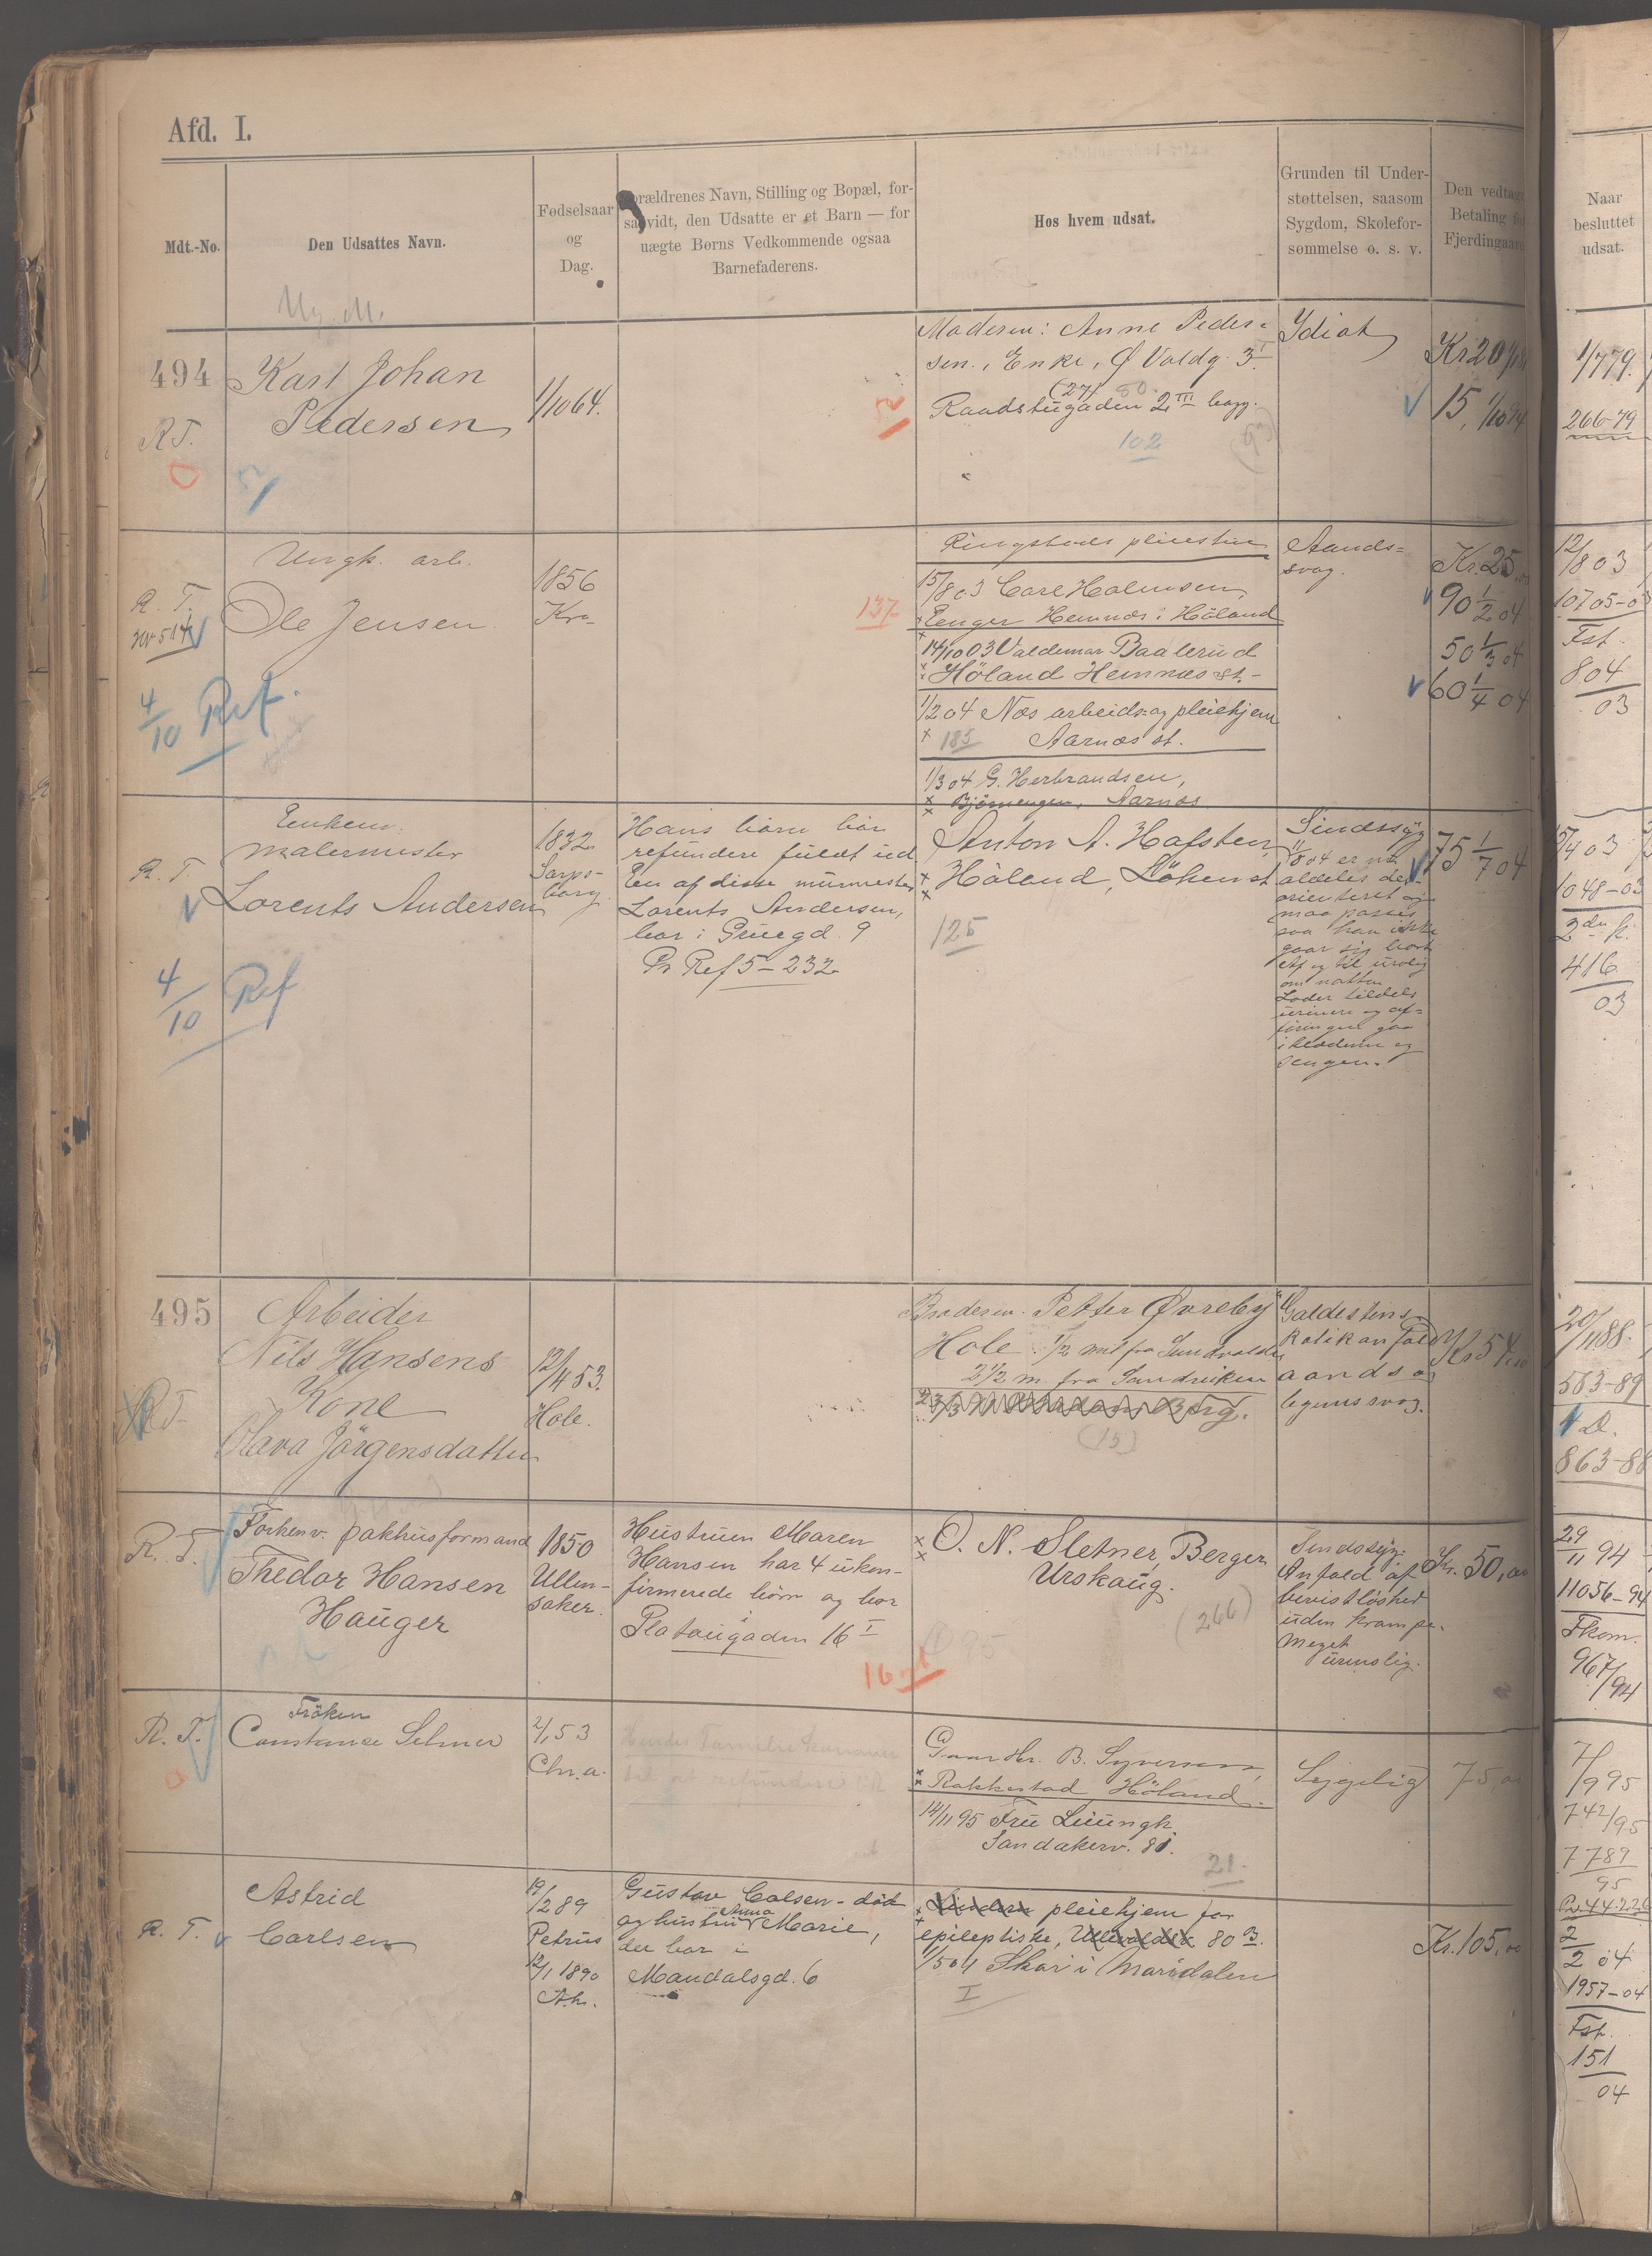 Afd. I.
Mdt.-No.
Den Udsattes Navn.
Fødselsaar
og
Dag.
Forældrenes Navn, Stilling og Bopæl, for-
saavidt, den Udsatte er et Barn — for
uægte Børns Vedkommende ogsaa
Barnefaderens.
Hos hvem udsat.
Grunden til Under-
støttelsen, saasom
Sygdom, Skolefor-
sømmelse o. s. v.
Den vedtagne
Betaling for
Fjerdingaaret
Naar
besluttet
udsat.
494
R.T.
Karl Johan
Pedersen
1/10 64.
Moderen: Anne Peder-
sen, Enke, Ø Voldg. 3 I
(27) 80
Raadstugaden 2 III bagg.
102
Idiot
Kr 20
15, 1/10 94
1/7 79.
266-79
R. T.
Ungk. arb.
Ole Jensen
4/10 Ref.
1856
Kra
137
Ringsbodes pleiestue
15/8 03 Carl Holmsen,
Enger Hemnæs i Höland
14/10 03 Valdemar Baalerud
Höland Hemnæs st.
1/2 04 Nes arbeids- og pleiehjem
185 Aarnæs st.
1/3 04 G. Herbrandsen,
Björnengen, Aarnæs
Aands-
svag.
Kr. 25,
90 1/2 04
50 1/3 04
60 1/4 04
12/8 03
10705-03
Fst.
804
03
R. T.
Enkem.
malermester
Lorents Andersen
4/10 Ref
1832
Sarps-
borg
Hans börn bör
refundere fuldt ud
En af disse murmester
Lorents Andersen,
bor i Gruegd. 9
Pr Ref 5-232
Anton A. Hafsten,
Höland, Löken st
125
Sindssyg
11/8 04 er nu
aldeles des-
orienteret og
maa passes
saa han ikke
gaar sig bort
Af og til urolig
om natten
Lader tildels
urinen og af-
föringen gaa
i klæderne og
sengen.
75 1/7 04
15/4 03
1048-03
2den k.
416
03
495
R.T.
Arbeider
Nils Hansens
Kone
Olava Jörgensdatter
12/4 53.
Hole.
Broderen Petter Øvreby
Hole 1/2 mil fra Sundvolden
2 1/2 m. fra Sandviken
(15)
Galdestens-
kolikanfald
aands og
legemssvag.
Kr 54,
20/11 88.
563-89
1 D.
863-88
R. T.
Forhenv. pakhusformand
Thedor Hansen
Hauger
1850
Ullen-
saker.
Hustruen Maren
Hansen har 4 ukon-
firmerede börn og bor
i
Platougaden 16 I
16
95
O. N. Sletner, Berger
Urskaug.
(266)
Sindssyg:
Anfald af
bevistlöshed
uden krampe.
Meget
urenslig.
Kr. 50,00
29/11 94
11056-94
Fkom.
967/94
R. T.
Fröken
Constance Selmer
2/1 53
Chr.a.
Hendes Familie kommer
til at refundere
Gaardbr. B. Syversen,
Rakkestad Höland.
14/11 95 Fru Liungh
Sandakerv. 81.
21.
Sygelig
75,00
7/9 95
742/95
7789
95
R. T.
Astrid
Carlsen
19/2 89
Petrus
12/1 1890
A.k.
Gustav Calsen - död
og hustru Anna Marie,
der bor i
Mandalsgd. 6
Linders pleiehjem for
epileptiske, Ullevaldsv. 80 B.
1/5 04 Skar i Maridalen
I
Kr. 105,00
Pr. 44.226
2/2 04
1957-04
Fst.
151
04